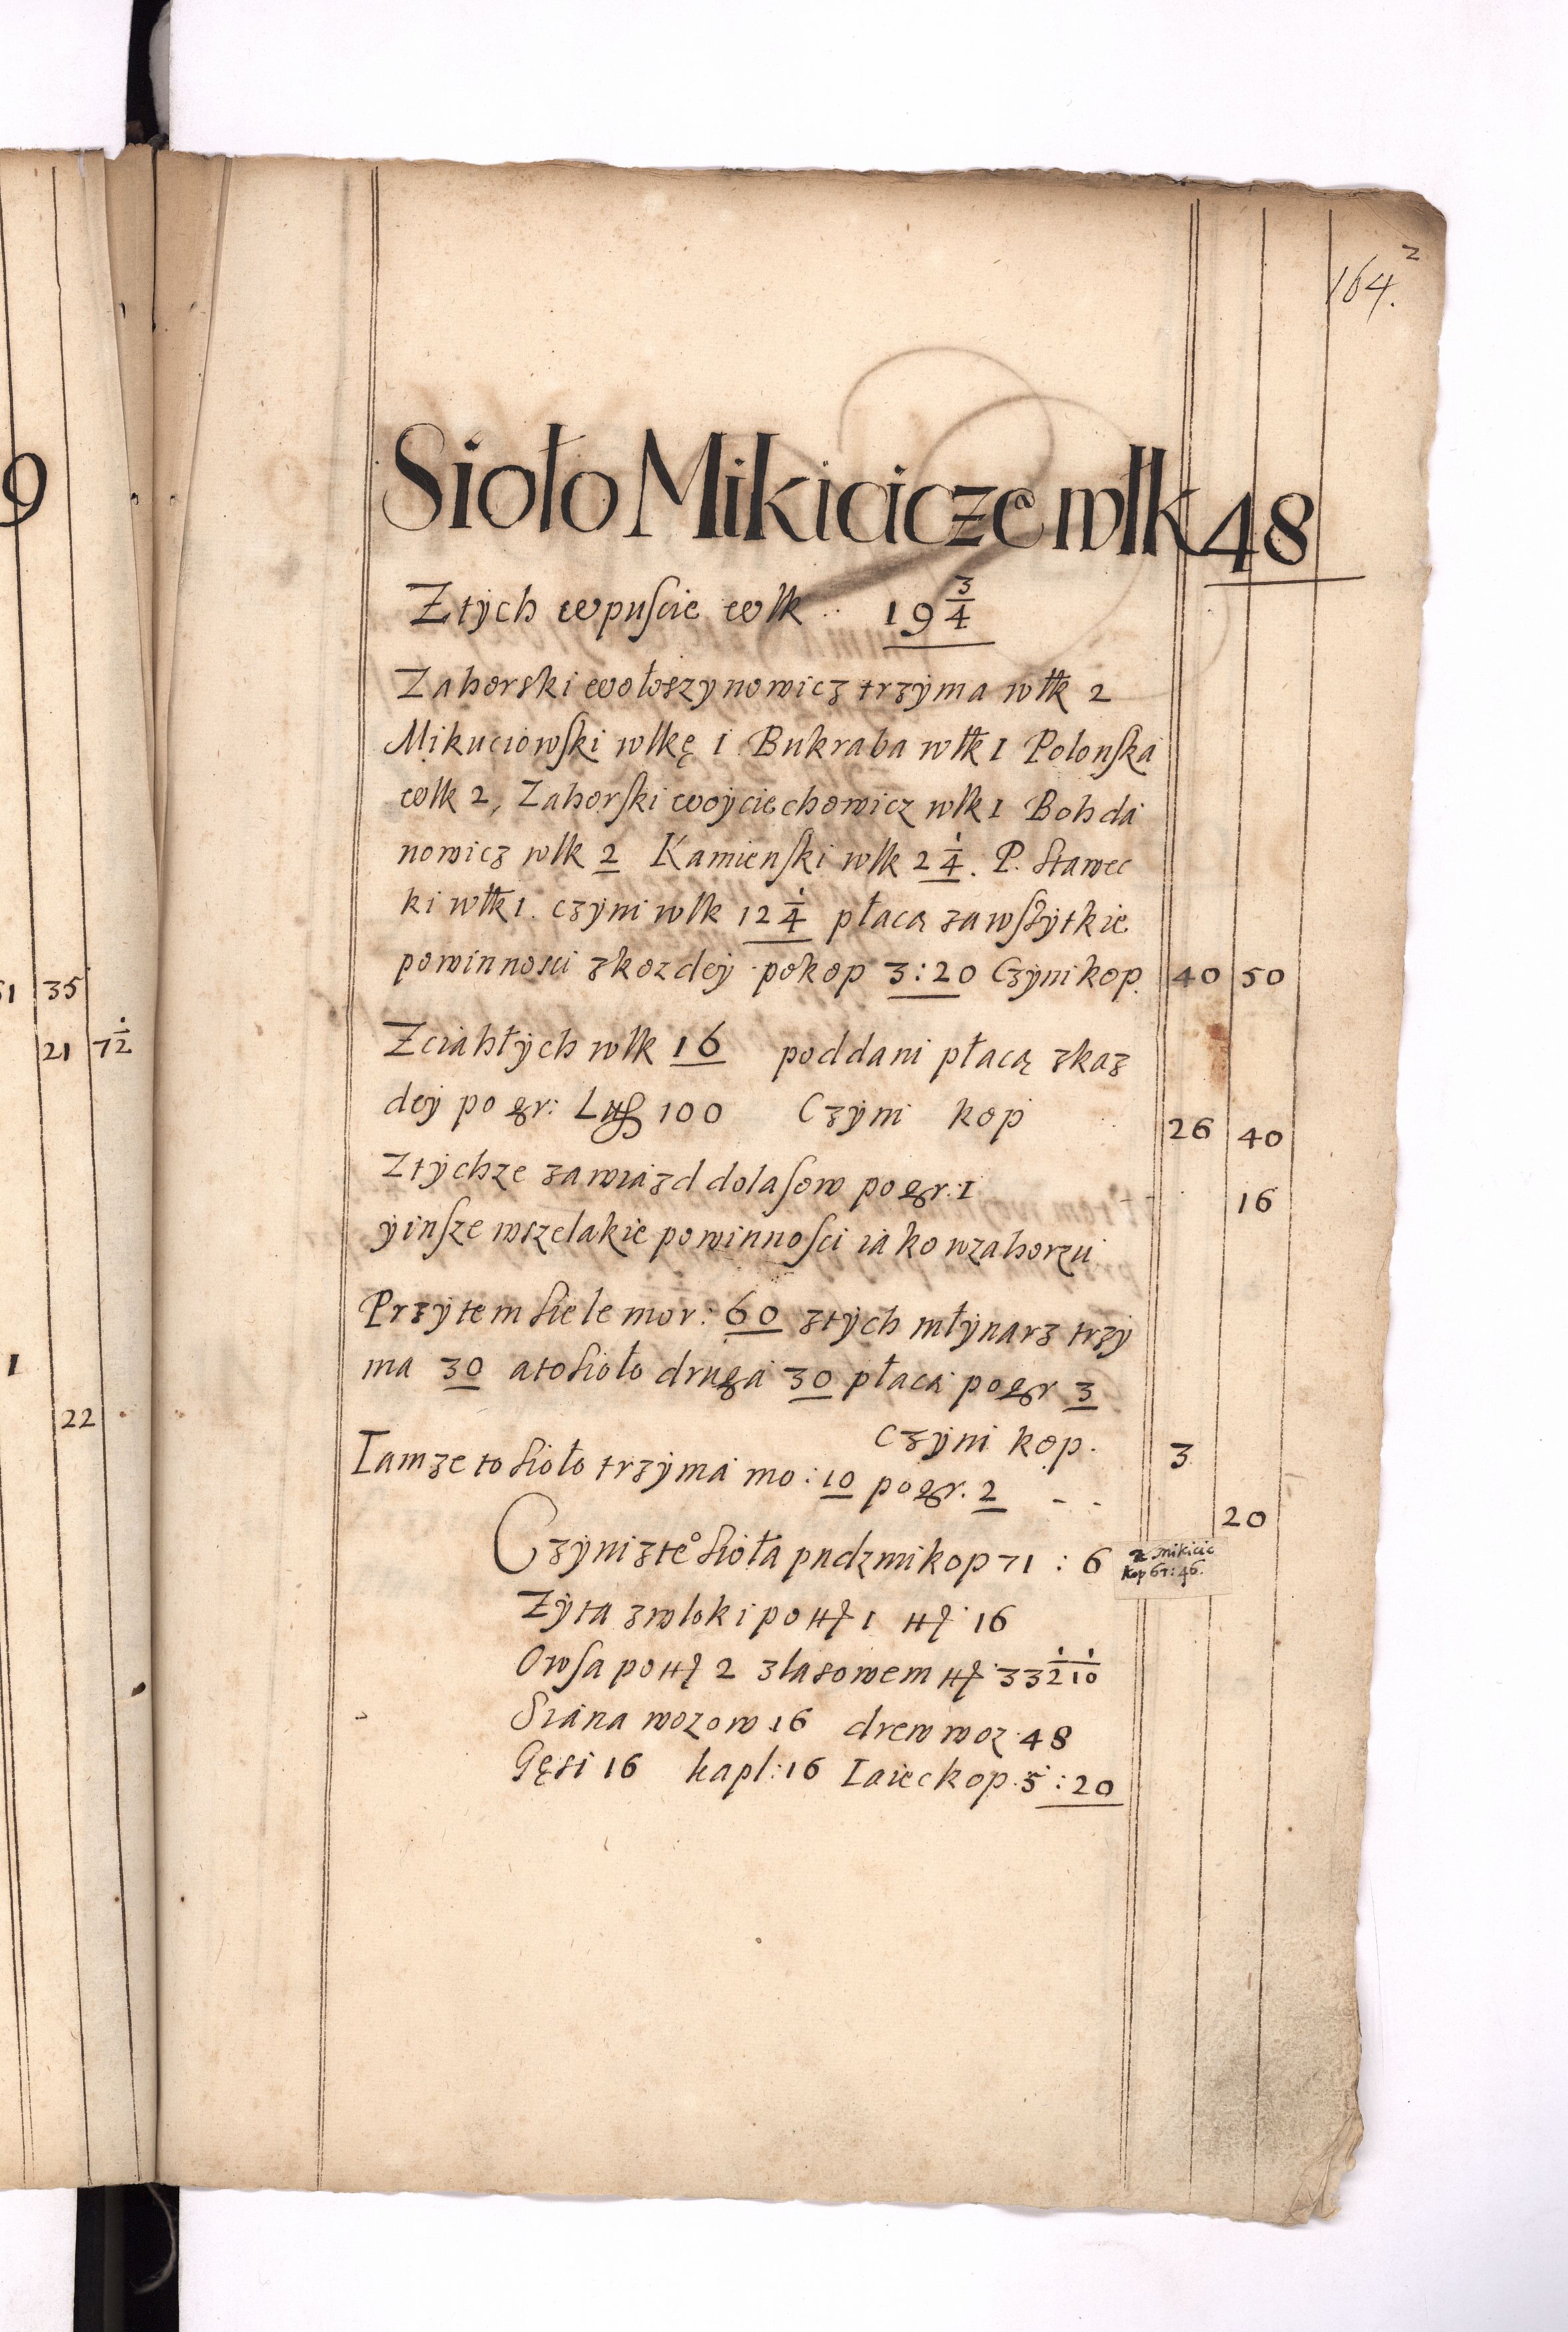 164. 2
Sioło Mikiciczewłk 48
Z tych wpuście wlk 19 3/4
Zahorski wołoszynowicz trzyma włk 2
Mikuciowski wlkę 1 Bukraba włk 1 Polonska
wlk 2, Zahorski woyciechowicz wlk 1 Bohda
nowicz wlk 2 Kamienski wlk 2 1/4. P. Stawec
ki włk 1. czyni wlk 12 1/4 płacą za wszytkie
powinnosci zkozdey po kop 3:20 Czyni kop. 40 50
Z ciahłych wlk 16 poddani płacą zkaz
dey po gr: 100 Czyni kop 26 40
Z tychze za wiazd do lasow po gr: 1 16
y insze wszelakie powinnosci iako w zahorzu
Przy tem siele mor: 60 z tych młynarz trzy
ma 30 a to sioło druga 30 płacą po gr 3
czyni kop. 3
Tamze to sioło trzyma mo: 10 po gr. 2 - - 20
Czyni z te° sioła pndzmi kop 71 : 6
z Mikicic
kop 67:46.
Zyta z wloki po 1 16
Owsa po 2 z lasowem 33 1/2 1/10
Siana wozow 16 drew woz 48
Gęsi 16 kapl: 16 Iaiec kop. 5 : 20
9
51 35
21 7 1/2
1
22